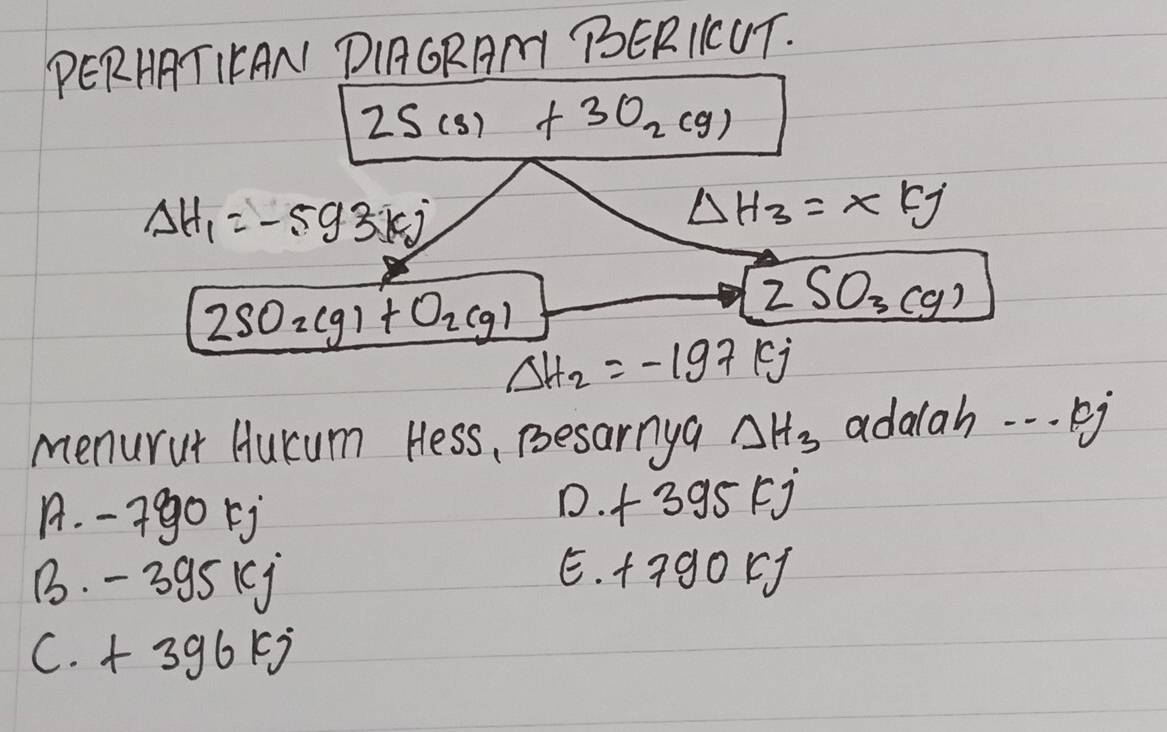 PERHATIKAN DIAGRAM BERIKUT.
2S (s) + 3O₂ (g)
ΔH₁ = -593 kj
ΔH₃ = x kj
2SO₂(g) + O₂(g)
2 SO₃ (g)
ΔH₂ = -197 kj
menurut Hukum Hess, Besarnya ΔH₃ adalah ... kj
A. - 790 kj
D. + 395 kj
B. - 395 kj
E. + 790 kj
C. + 396 kj